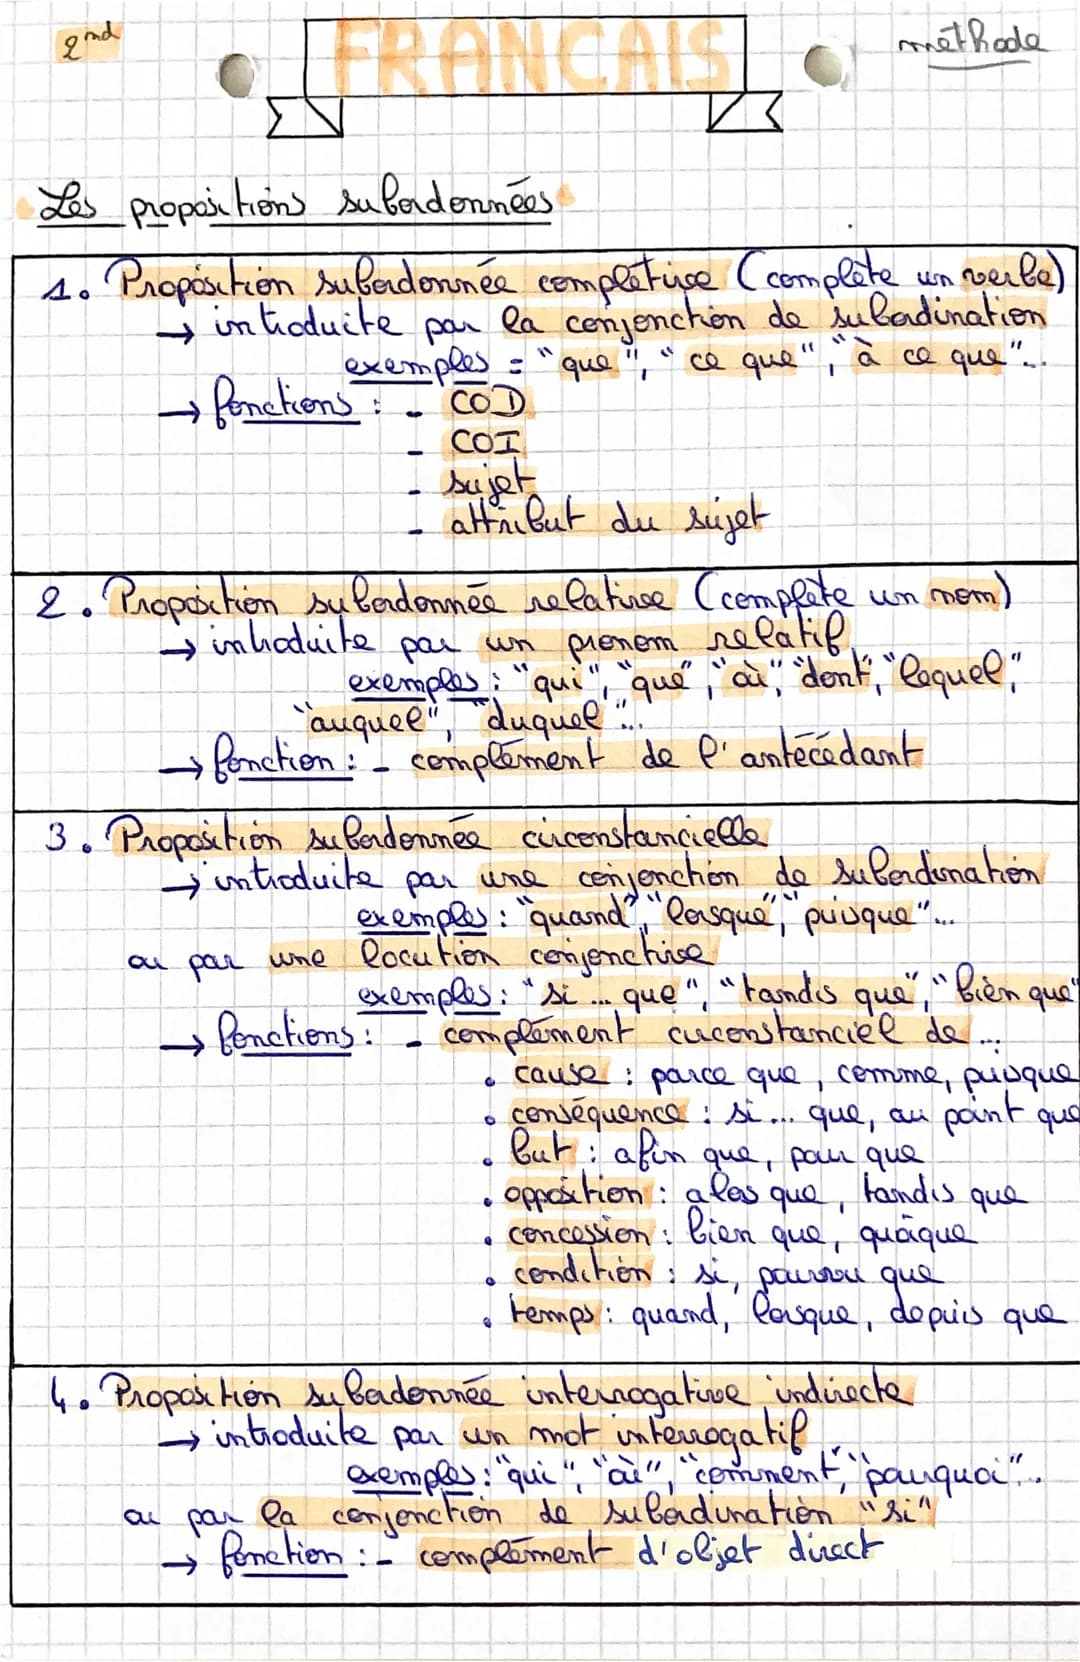 2nd
FRANCAIS
méthode
Les propositions subordonnées
1. Proposition subordonnée complétive (complète un verbe)
→ introduite par la conjonction de subordination
exemples = "que", "ce que", "à ce que"...
→ fonctions : - COD
- COI
- sujet
- attribut du sujet
2. Proposition subordonnée relative (complète un nom)
→ introduite par un pronom relatif
exemples : "qui", "que", "où", "dont", "lequel",
"auquel", "duquel"...
→ fonction : - complément de l'antécédant
3. Proposition subordonnée circonstancielle
→ introduite par une conjonction de subordination
exemples : "quand", "lorsque", "puisque"...
ou par une locution conjonctive
exemples : "si ... que", "tandis que", "bien que"
→ fonctions : - complément circonstanciel de ...
• cause : parce que, comme, puisque
• conséquence : si ... que, au point que
• but : afin que, pour que
• opposition : alors que, tandis que
• concession : bien que, quoique
• condition : si, pourvu que
• temps : quand, lorsque, depuis que
4. Proposition subordonnée interrogative indirecte
→ introduite par un mot interrogatif
exemples : "qui", "où", "comment", "pourquoi"...
ou par la conjonction de subordination "si"
→ fonction : - complément d'objet direct